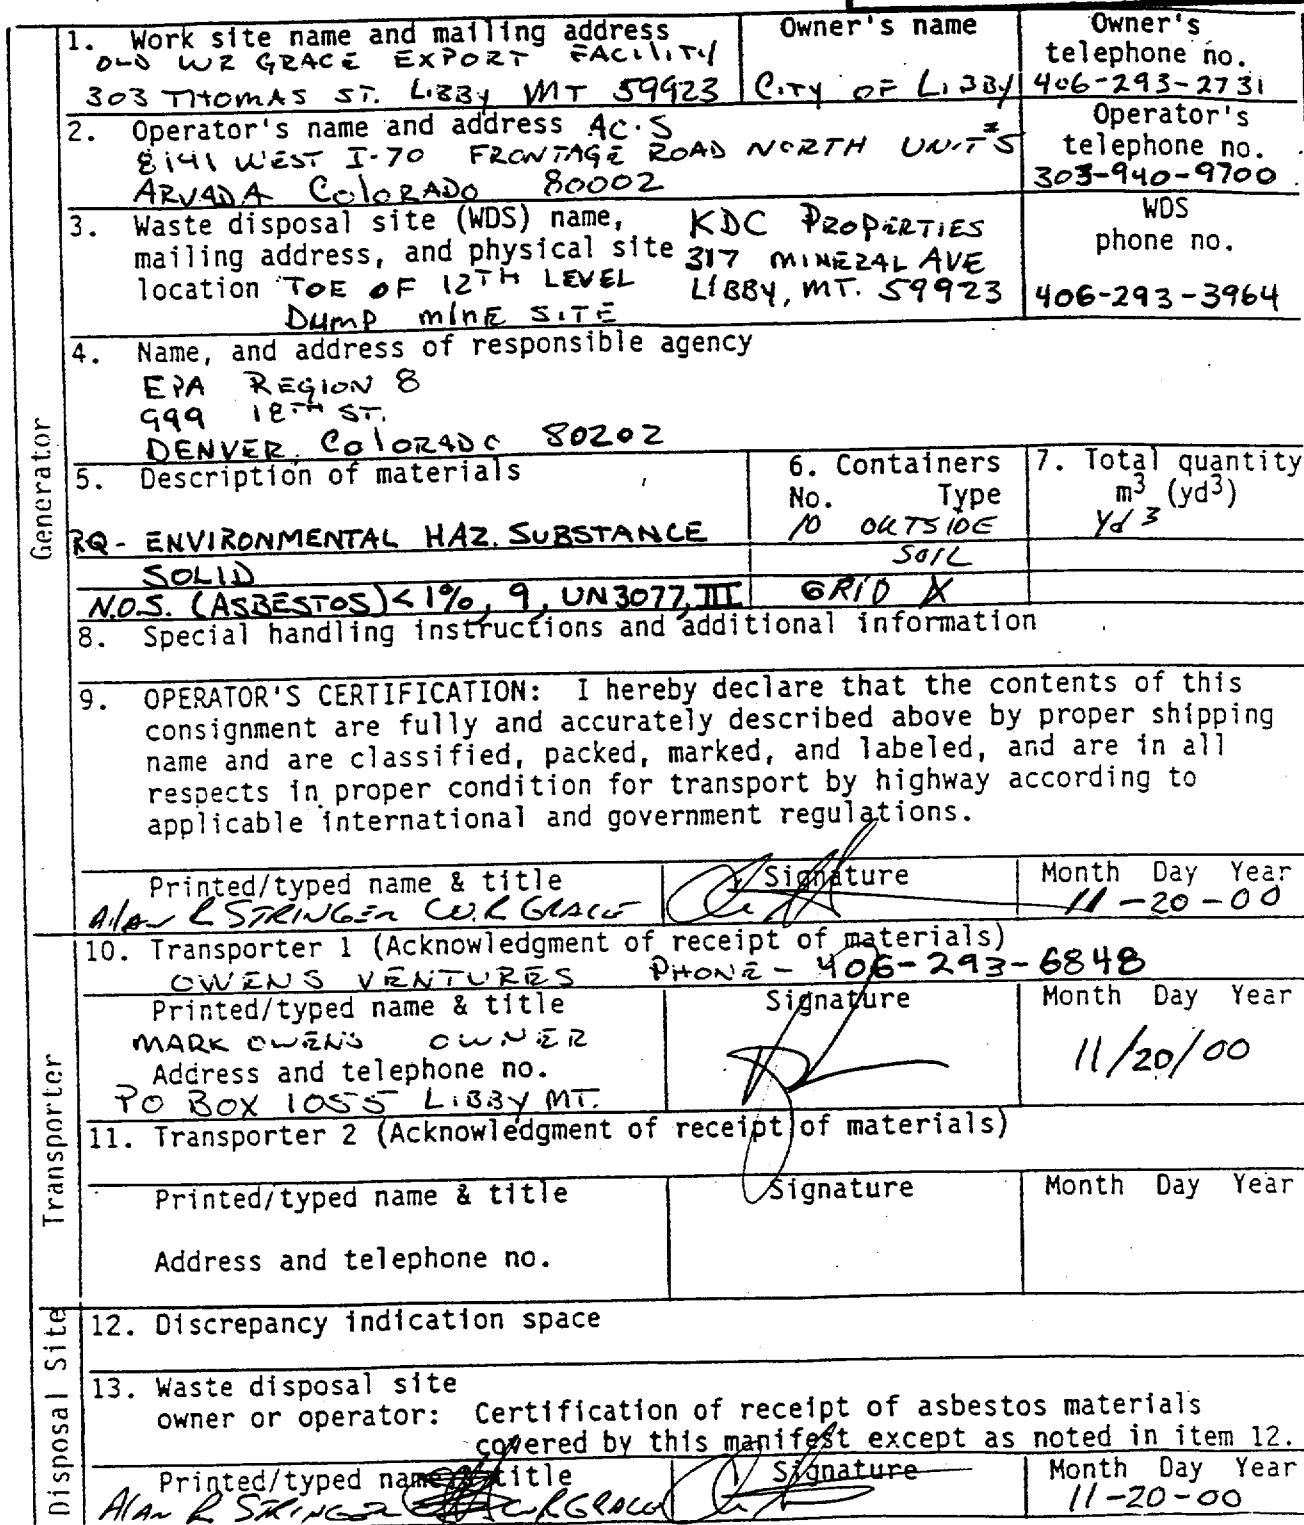 1. Work site name and mailing address
OLD WR GRACE EXPORT FACILITY
303 THOMAS ST. LIBBY MT 59923
Owner's name
CITY OF LIBBY
Owner's
telephone no.
406-293-2731
2. Operator's name and address AC·S
8141 WEST I-70 FRONTAGE ROAD NORTH UNIT #5
ARVADA COLORADO 80002
Operator's
telephone no.
303-940-9700
3. Waste disposal site (WDS) name,
mailing address, and physical site
location TOE OF 12TH LEVEL
DUMP MINE SITE
KDC PROPERTIES
317 MINERAL AVE
LIBBY, MT. 59923
WDS
phone no.
406-293-3964
4. Name, and address of responsible agency
EPA REGION 8
999 18TH ST.
DENVER, COLORADO 80202
Generator
5. Description of materials
RQ- ENVIRONMENTAL HAZ. SUBSTANCE
SOLID
N.O.S. (ASBESTOS) <1%, 9, UN3077, III
6. Containers
No. Type
10 OUTSIDE
SOIL
GRID X
7. Total quantity
m3 (yd3)
Yd 3
8. Special handling instructions and additional information
9. OPERATOR'S CERTIFICATION: I hereby declare that the contents of this
consignment are fully and accurately described above by proper shipping
name and are classified, packed, marked, and labeled, and are in all
respects in proper condition for transport by highway according to
applicable international and government regulations.
Printed/typed name & title
Alan R STRINGER W.R GRACE
Signature
Month Day Year
11-20-00
Transporter
10. Transporter 1 (Acknowledgment of receipt of materials)
OWENS VENTURES PHONE- 406-293-6848
Printed/typed name & title
MARK OWENS OWNER
Address and telephone no.
PO BOX 1055 LIBBY MT.
Signature
Month Day Year
11/20/00
11. Transporter 2 (Acknowledgment of receipt of materials)
Printed/typed name & title
Signature
Month Day Year
Address and telephone no.
Disposal Site
12. Discrepancy indication space
13. Waste disposal site
owner or operator: Certification of receipt of asbestos materials
covered by this manifest except as noted in item 12.
Printed/typed name & title
Alan R STRINGER W.R GRACE
Signature
Month Day Year
11-20-00